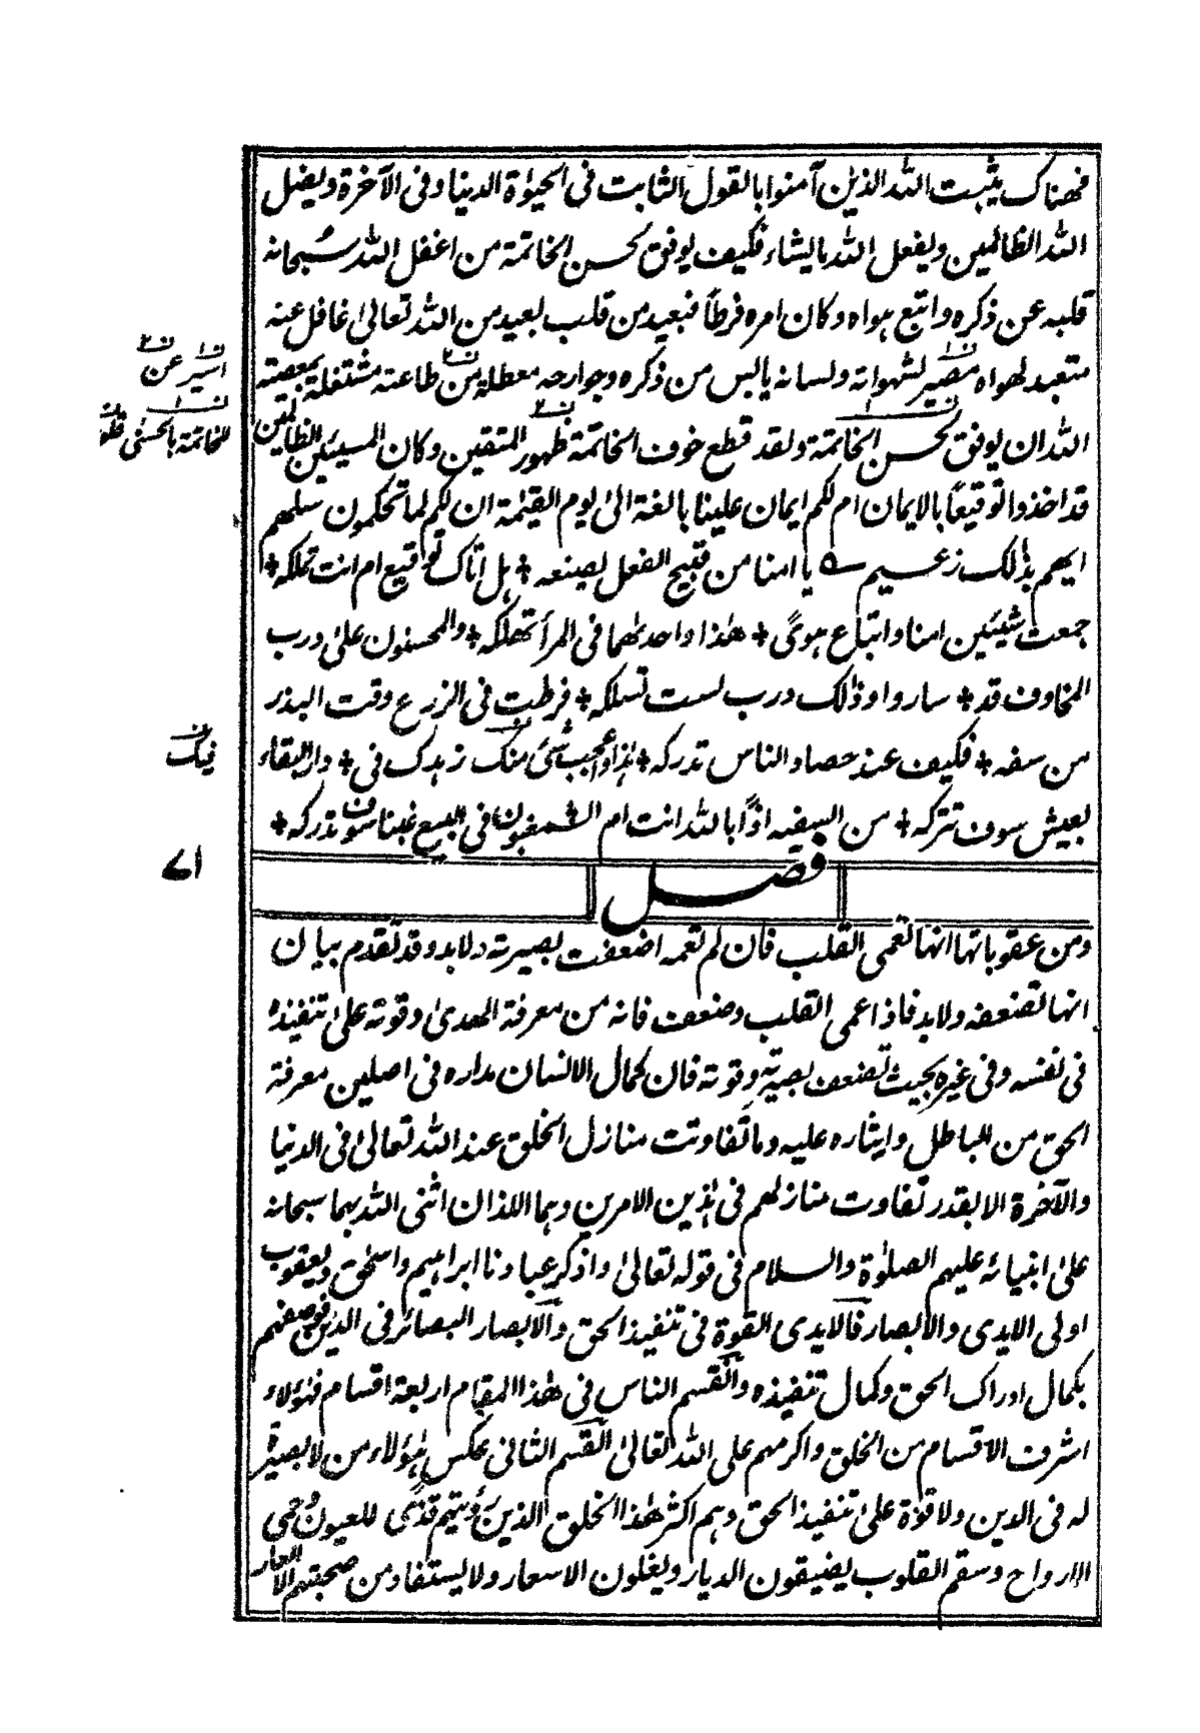 فهناك يثبت الله الذين آمنوا بالقول الثابت فى الحيوٰة الدنيا وفى الآخرة ويضل
الله الظالمين ويفعل الله ما يشاء فكيف يوفق لحسن الخاتمة من اغفل الله سبحانه
قلبه عن ذكره واتبع هواه وكان امره فرطاً فبعيد من قلب بعيد من الله تعالىٰ غافل عنه
متعبد لهواه مصير لشهواته ولسانه يابس من ذكره وجوارحه معطلة من طاعته مشتغلة بمعصيته
اسير عن
الله ان يوفق لحسن الخاتمة ولقد قطع خوف الخاتمة ظهور المتقين وكان المسيئين الظالمين
للخاتمة بالحسنى قلوب
قد اخذوا توقيعاً بالايمان ام لكم ايمان علينا بالغة الىٰ يوم القيٰمة ان لكم لما تحكمون سلهم
ايهم بذٰلك زعيم ے يا امنا من قبيح الفعل يصنعه + هل اتاك توقيع ام انت تملكه +
جمعت شيئين امنا واتباع هوىً + هٰذا واحدٰهما فى المرأ تهلكه + والمحسنون علىٰ درب
المخاوف قد + ساروا وذٰلك درب لست تسلكه + فرطت فى الزرع وقت البذر
من سفه + فكيف عند حصاد الناس تدركه + هٰذا واعجب شئ منك زهدك فى + دار البقاء
فيك
بعيش سوف تتركه + من السفيه اذاً بالله انت ام المغبون فى البيع غبنا سوف تدركه +
٧١
فصل
ومن عقوباتها انها تعمى القلب فان لم تعمه اضعفت بصيرته ولابد وقد تقدم بيان
انها تضعفه ولابد فاذا عمى القلب وضعف فاته من معرفة الهدىٰ وقوته علىٰ تنفيذهٖ
فى نفسه وفى غيره بحيث تضعف بصيرته وقوته فان كمال الانسان مداره فى اصلين معرفة
الحق من الباطل وايثاره عليه وما تفاوتت منازل الخلق عند الله تعالىٰ فى الدنيا
والآخرة الا بقدر تفاوت منازلهم فى هٰذين الامرين وهما اللذان اثنى الله بهما سبحانه
علىٰ انبيائه عليهم الصلوٰة والسلام فى قوله تعالىٰ واذكر عبادنا ابراهيم واسحٰق ويعقوب
اولى الايدى والابصار فالايدى القوة فى تنفيذ الحق والابصار البصائر فى الدين فوصفهم
بكمال ادراك الحق وكمال تنفيذه وانقسم الناس فى هٰذا المقام اربعة اقسام فهٰؤلاء
اشرف الاقسام من الخلق واكرمهم على الله تعالىٰ القسم الثانى عكس هٰؤلاء من لا بصيرة
له فى الدين ولا قوة علىٰ تنفيذ الحق وهم اكثر هٰذا الخلق الذين رؤيتهم قذىً للعيون وحمى
الارواح وسقم القلوب يضيقون الديار ويغلون الاسعار ولا يستفاد من صحبتهم الا العار